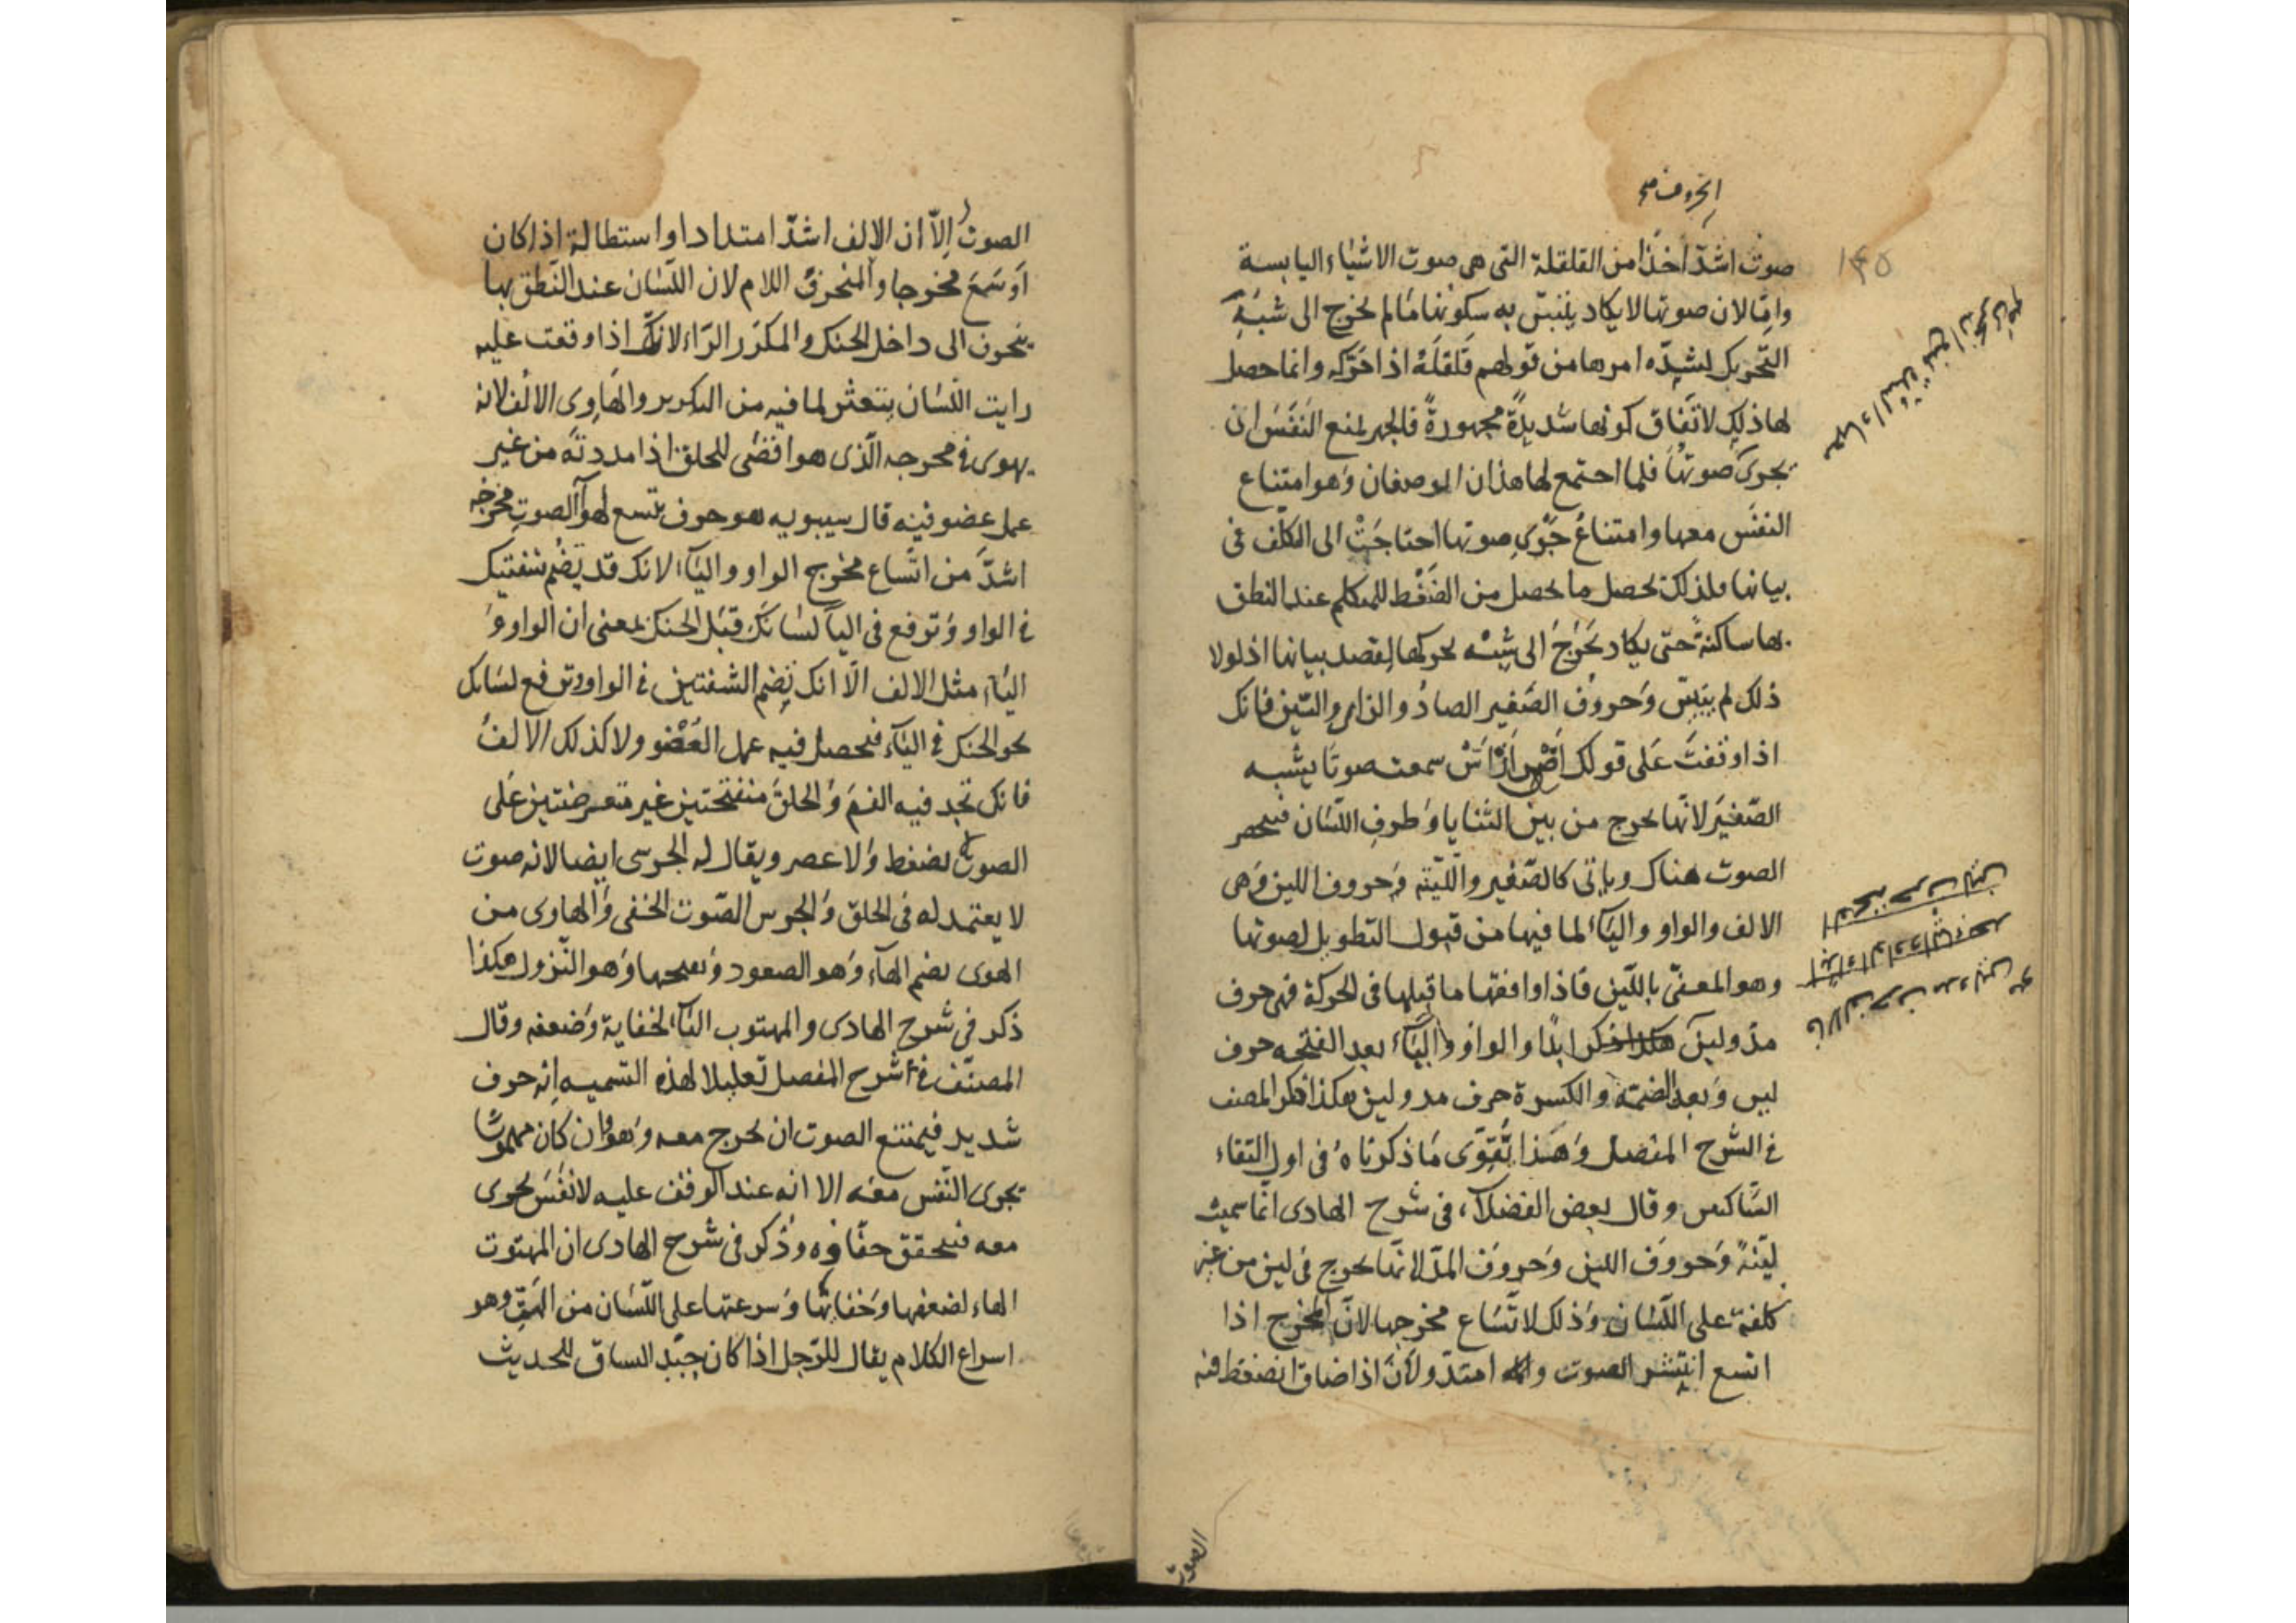 الحروف صح
صوت اشدّ اخذًا من القلقلة التى هى صوت الاشياء اليابسة
١٤٥
وامّا لان صوتها لا يكاد يتبيّن به سكونها مالم يخرج الى شبه
التحريك لشدّه امرها من قولهم قَلقلَهُ اذا حرّكه وانما حصل
لها ذلك لاتفاق كونها شديدةً مجهورةً فالجهر يمنع النَفَس ان
يجرى صوتها فلما اجتمع لها هذان الوصفان وهو امتناع
النفَس معها وامتناعُ جَرْىِ صوتها احتاجَتْ الى التكلف فى
بيانها فلذلك تحصل ما يحصل من الضَغْط للمتكلم عند النطق
بها ساكنةً حتى يكاد تخرُجُ الى شبه تحركها لقصد بيانها اذ لولا
ذلك لم يتبيّن وحروف الصّفير الصادُ والزاى والسّين فانك
اذا وقفتَ على قولك اَصْ اَزْ اَسْ سمعت صوتًا يشبه
الصّفيرَ لانّها تخرج من بين الثنايا وطرفِ اللّسان فينحصر
الصوت هناك وياتى كالصّفير واللّينه وحروف اللين وهى
الالف والواو والياء لما فيها من قبول التطويل لصوتها
وهو المعنىّ باللّين فاذا وافقها ما قبلها فى الحركة فهى حرف
مدّ ولين ابدًا والواو والياء بعد الفتحه حرف
لين وبعد الضمّة والكسرة حرف مد ولين هكذا ذكر المصنف
فى الشرح المفصل وهذا يُقوّى ما ذكرناهُ فى اول التقاء
السّاكنين وقال بعض الفضلاء فى شرح الهادى انما سميت
ليّنةً وحروف اللين وحروف المدّ لانّها تخرج فى لين من غير
كلفة على اللّسان وذلك لاتّساع مخرجها لانّ المخرج اذا
اتسع انتشر الصوت وامتدّ ولانّ اذا ضاق انضغط فيه
الصوت
الصوت اِلاّ ان الالف اشدّ امتدادا واستطالة اذا كان
اَوسَعَ مخرجا والمنحرفُ اللام لان اللسان عند النّطق بها
ينحرف الى داخل الحنك والمكرّر الرّاء لانك اذا وقفت عليه
رايت اللّسان يتعثّر لما فيه من التكرير والهَاوِى الالف لانه
يهوى فى مخرجه الّذى هو اقصى الحلق اذا مددته من غير
عمل عضو فيه قال سيبويه هو حرف يتسع لهوآ الصوتِ مخرجه
اشدَّ من اتّساع مخرج الواو والياء لانك قد تضُم شفتيك
فى الواو وترفع فى الياء لسانَك قِبَل الحنك بمعنى ان الواو و
الياء مثل الالف الّا انك تضم الشفتين فى الواو وترفع لسانك
نحو الحنك فى الياء فيحصل فيه عمل العُضْو ولا كذلك الالفُ
فانك تجد فيه الفمَ والحلقَ منفتحتين غير معترضتين على
الصوت بضغط ولا عصر ويقال له الجرسى ايضا لانه صوت
لا يعتمد له فى الحلق والجرس الصّوت الخفى والهاوى من
الهوى بضم الهآء وهو الصعود وبفتحها وهو النّزول هكذا
ذكر فى شرح الهادى والمهتوب التاء لخفاية وضعفه وقال
المصنّف فى شرح المفصل تعليلا لهذه التسميه انه حرف
شديد فيمتنع الصوت ان يخرج معه وهو وان كان مهموسًا
يجرى النّفس معه الا انه عند الوقف عليه لا نفَسَ يجرى
معه فيتحقق خفاؤه وذُكر فى شرح الهادى ان المهتوت
الهاء لضعفها وخفائها وسرعتها على اللّسان من الهتّ وهو
اسراع الكلام يقال للرّجل اذا كان جيّد السياق للحديث